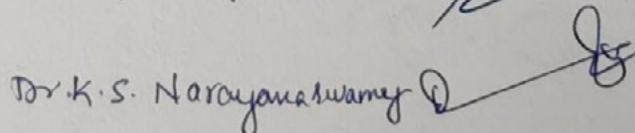 Dr. K. S. Narayanaswamy